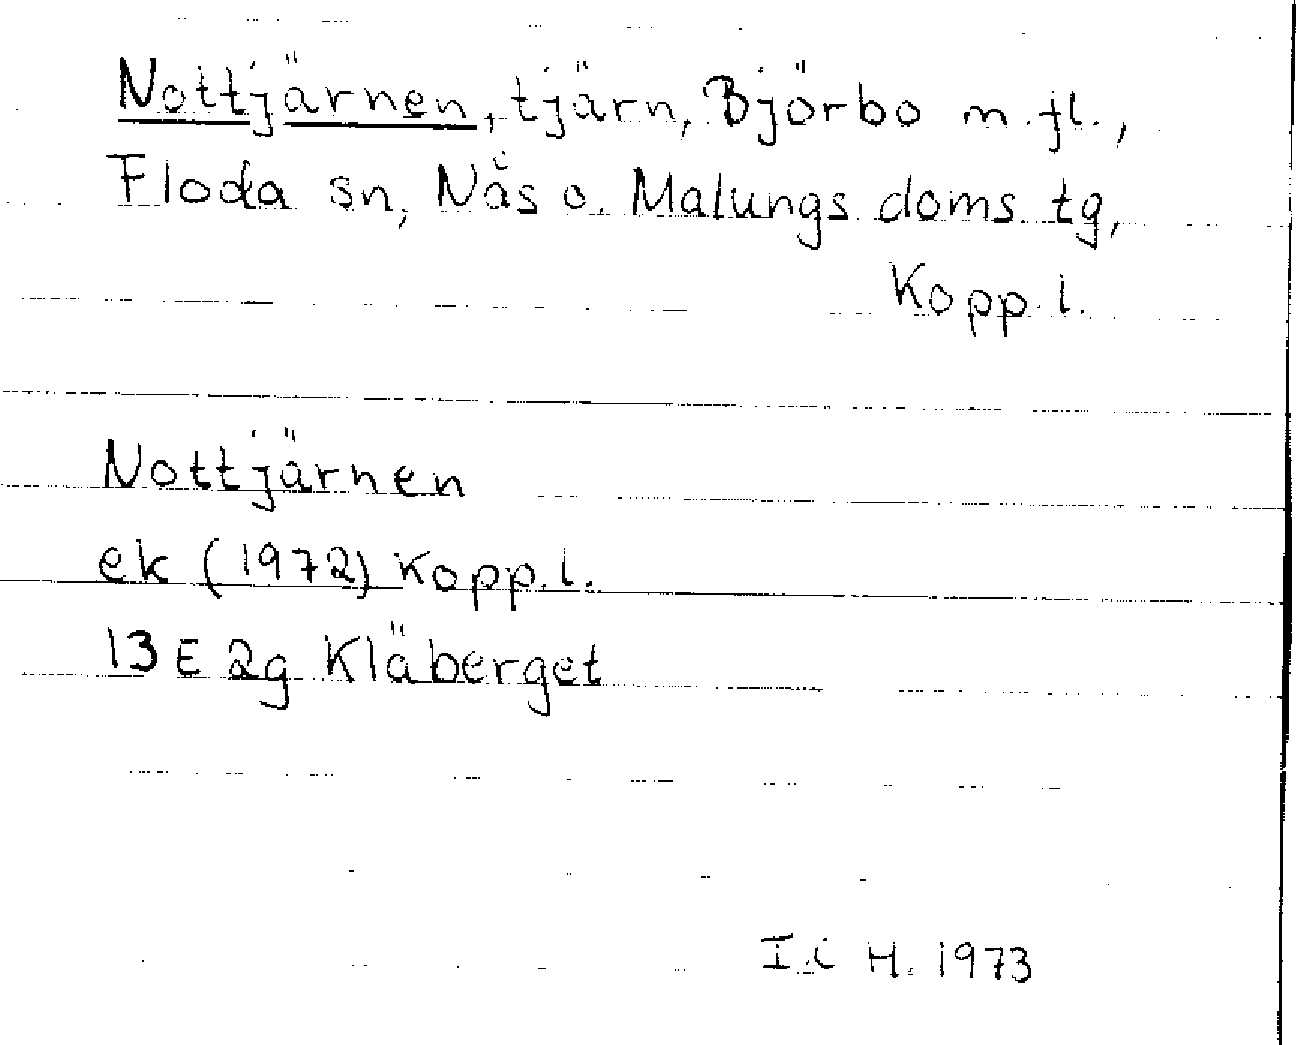 Nottjärnen, tjärn, Björbo m.fl.,
Floda sn, Nås o. Malungs doms. tg,
Kopp. l.
Nottjärnen
ek (1972) Kopp. l.
13 E 2g Kläberget
H. 1973